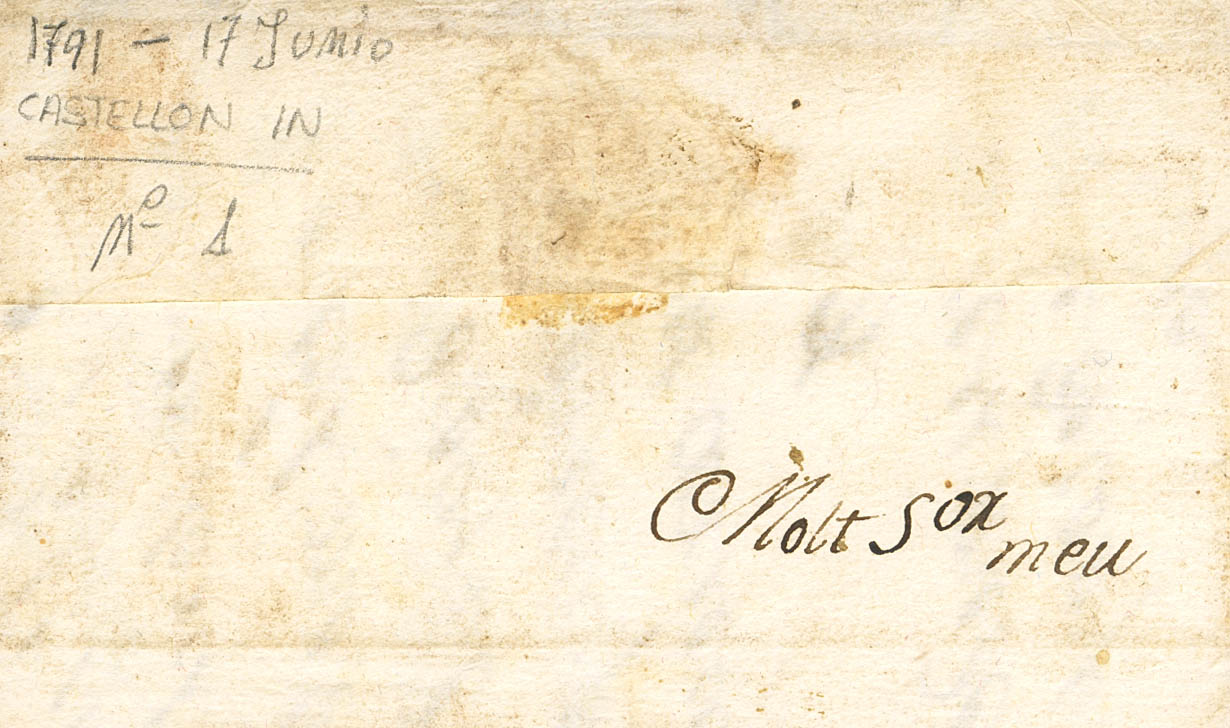 1791 - 17 Junio
CASTELLON IN
Nº 1
Molt Sor meu